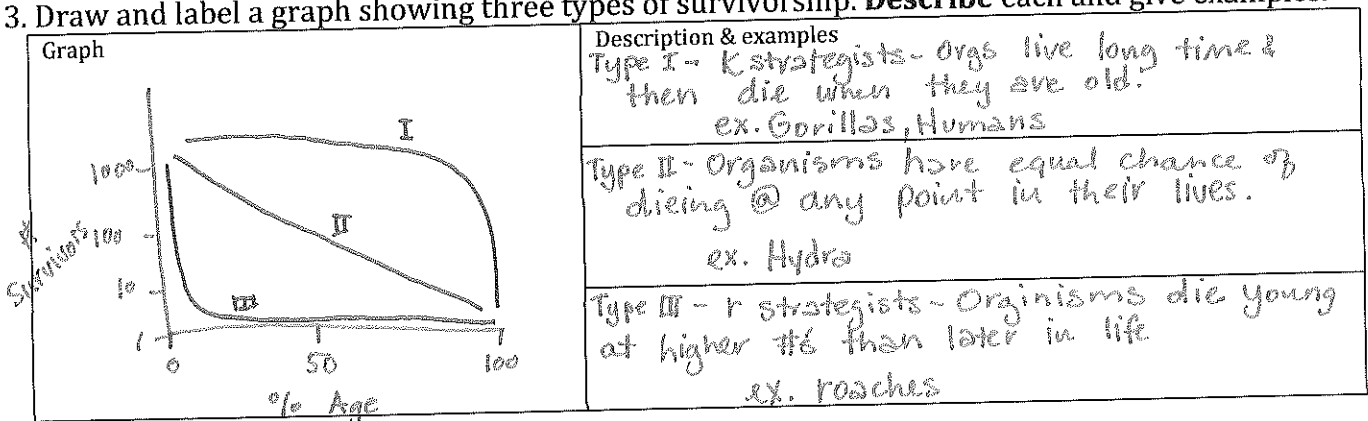 3. Draw and label a graph showing three types of survivorship. Describe each and give examples.
Graph
I
II
III
1000
100
10
1
# Survivors
0 50 100
% Age
Description & examples
Type I - K strategists - Orgs live long time &
then die when they are old.
ex. Gorillas, Humans
Type II - Organisms have equal chance of
dieing @ any point in their lives.
ex. Hydra
Type III - r strategists - Orginisms die young
at higher #s than later in life
ex. roaches